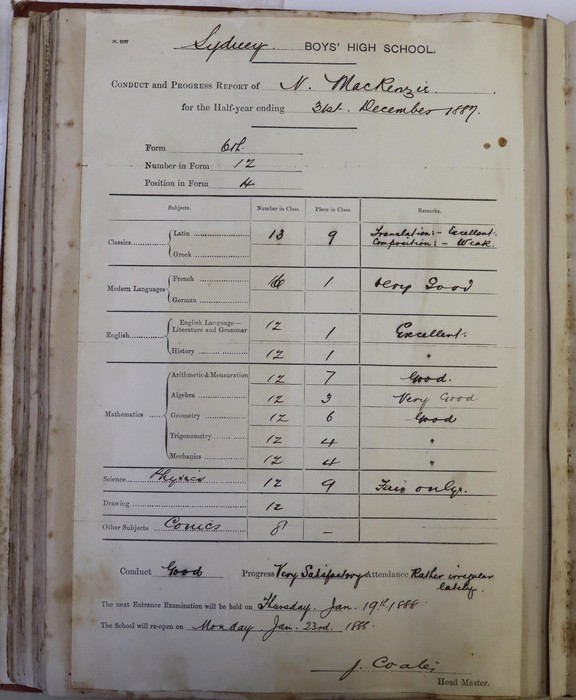 Sydney BOYS' HIGH SCHOOL.
CONDUCT AND PROGRESS REPORT of N. MacKenzie
for the Half-year ending 31st. December 1887.
Form 6th.
Number in Form 12
Position in Form 4
Subjects. Number in Class. Place in Class. Remarks.
Classics Latin 13 9 Translation:- Excellent.
Composition:- Weak.
Greek
Modern Languages French 16 1 Very Good
German
English English Language—
Literature and Grammar 12 1 Excellent.
History 12 1 "
Mathematics Arithmetic & Mensuration 12 7 Good.
Algebra 12 3 Very Good
Geometry 12 6 Good
Trigonometry 12 4 "
Mechanics 12 4 "
Science Physics 12 9 Fair only.
Drawing 12
Other Subjects Conics 8 —
Conduct Good Progress Very Satisfactory Attendance Rather irregular
lately.
The next Entrance Examination will be held on Thursday. Jan. 19th 1888
The School will re-open on Monday Jan. 23rd. 1888.
J. Coates
Head Master.